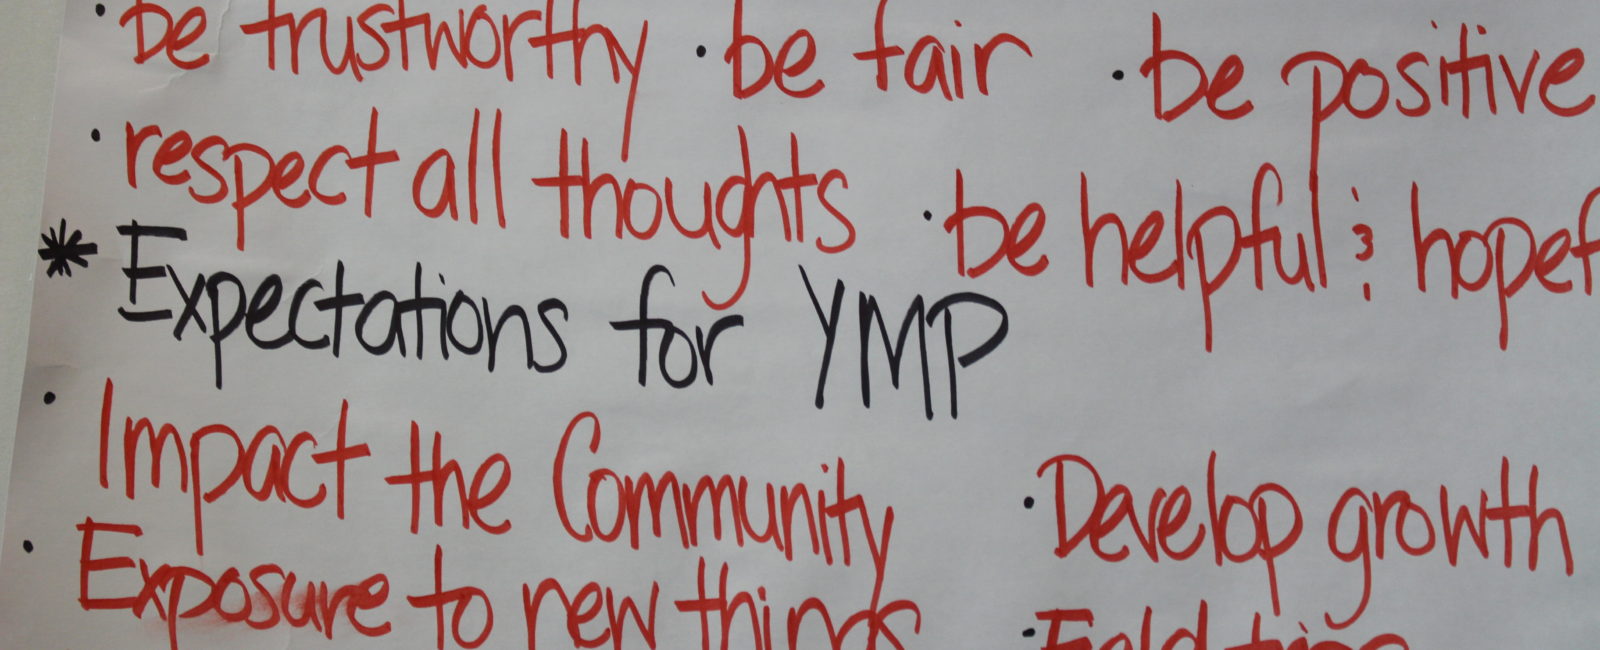 · be trustworthy · be fair · be positive
· respect all thoughts · be helpful & hopef
* Expectations for YMP
· Impact the Community · Develop growth
· Exposure to new things ·